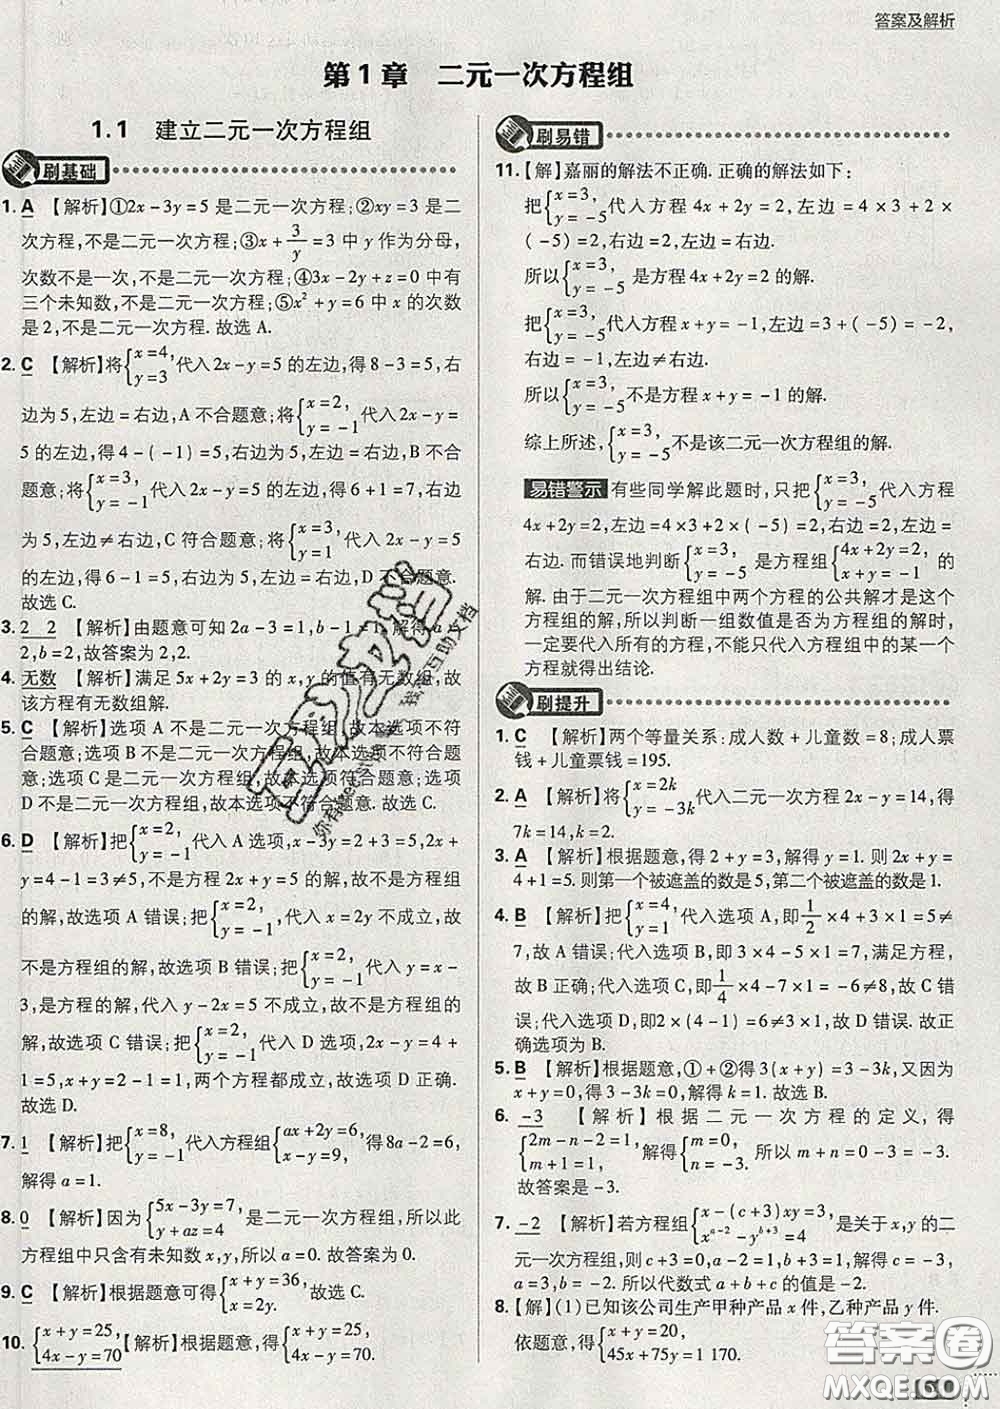 答案及解析
第1章 二元一次方程组
1.1 建立二元一次方程组
刷基础
1. A 【解析】①2x-3y=5 是二元一次方程;②xy=3 是二
次方程,不是二元一次方程;③x+3/y=3 中 y 作为分母,
次数不是一次,不是二元一次方程;④3x-2y+z=0 中有
三个未知数,不是二元一次方程;⑤x²+y=6 中 x 的次数
是2,不是二元一次方程. 故选 A.
2. C 【解析】将{x=4, y=3 代入 2x-y=5 的左边,得 8-3=5,右
边为5,左边=右边,A 不合题意;将{x=2, y=-1 代入 2x-y=5
的左边,得 4-(-1)=5,右边为5,左边=右边,B 不合
题意;将{x=3, y=-1 代入 2x-y=5 的左边,得 6+1=7,右边
为5,左边≠右边,C 符合题意;将{x=3, y=1 代入 2x-y=5
的左边,得 6-1=5,右边为5,左边=右边,D 不合题意.
故选 C.
3. 2 2 【解析】由题意可知 2a-3=1,b-1=1,解得 a=
2,b=2,故答案为 2,2.
4. 无数 【解析】满足 5x+2y=3 的 x,y 的值有无数组,故
该方程有无数组解.
5. C 【解析】选项 A 不是二元一次方程组,故本选项不符
合题意;选项 B 不是二元一次方程组,故本选项不符合题
意;选项 C 是二元一次方程组,故本选项符合题意;选项
D 不是二元一次方程组,故本选项不符合题意. 故选 C.
6. D 【解析】把{x=2, y=-1 代入 A 选项,x-3y=2+3=5,2x+
y=4-1=3≠5,不是方程 2x+y=5 的解,不是方程组
的解,故选项 A 错误;把{x=2, y=-1 代入 x=2y 不成立,故
不是方程组的解,故选项 B 错误;把{x=2, y=-1 代入 y=x-
3,是方程的解,代入 y-2x=5 不成立,故不是方程组的
解,故选项 C 错误;把{x=2, y=-1 代入 D 选项,2x-y=4+
1=5,x+y=2-1=1,两个方程都成立,故选项 D 正确.
故选 D.
7. 1 【解析】把{x=8, y=-1 代入方程组{ax+2y=6, x-y=9, 得 8a-2=6,
解得 a=1.
8. 0 【解析】因为{5x-3y=7, y+az=4 是二元一次方程组,所以此
方程组中只含有未知数 x,y,所以 a=0. 故答案为 0.
9. C 【解析】根据题意可得{x+y=36, x=2y. 故选 C.
10. {x+y=25, 4x-y=70 【解析】根据题意,得{x+y=25, 4x-y=70.
刷易错
11. 【解】嘉丽的解法不正确. 正确的解法如下:
把{x=3, y=-5 代入方程 4x+2y=2,左边=4×3+2×
(-5)=2,右边=2,左边=右边.
所以{x=3, y=-5 是方程 4x+2y=2 的解.
把{x=3, y=-5 代入方程 x+y=-1,左边=3+(-5)=-2,
右边=-1,左边≠右边.
所以{x=3, y=-5 不是方程 x+y=-1 的解.
综上所述,{x=3, y=-5 不是该二元一次方程组的解.
易错警示 有些同学解此题时,只把{x=3, y=-5 代入方程
4x+2y=2,左边=4×3+2×(-5)=2,右边=2,左边=
右边. 而错误地判断{x=3, y=-5 是方程组{4x+2y=2, x+y=-1 的
解. 由于二元一次方程组中两个方程的公共解才是这个
方程组的解,所以判断一组数值是否为方程组的解时,
一定要代入所有的方程,不能只代入方程组中的某一个
方程就得出结论.
刷提升
1. C 【解析】两个等量关系:成人数+儿童数=8;成人票
钱+儿童票钱=195.
2. A 【解析】将{x=2k, y=-3k 代入二元一次方程 2x-y=14,得
7k=14,k=2.
3. A 【解析】根据题意,得 2+y=3,解得 y=1. 则 2x+y=
4+1=5. 则第一个被遮盖的数是5,第二个被遮盖的数是1.
4. B 【解析】把{x=4, y=1 代入选项 A,即1/2×4+3×1=5≠
7,故 A 错误;代入选项 B,即 3×4-5×1=7,满足方程,
故 B 正确;代入选项 C,即1/4×4-7×1=-6≠8,故 C 错
误;代入选项 D,即2×(4-1)=6≠3×1,故 D 错误. 故正
确选项为 B.
5. B 【解析】根据题意,①+②得 3(x+y)=3-3k,又因为
x+y=0,得 3-3k=0,解得 k=1. 故选 B.
6. -3 【解析】根据二元一次方程的定义,得
{2m-n-2=1, m+1=1, 解得{m=0, n=-3, 所以 m+n=0-3=-3.
故答案是-3.
7. -2 【解析】若方程组{x-(c+3)xy=3, x^(a-2)-y^(b+3)=4 是关于 x,y 的二
元一次方程组,则 c+3=0,a-2=1,b+3=1,解得 c=-3,
a=3,b=-2. 所以代数式 a+b+c 的值是-2.
8. 【解】(1)已知该公司生产甲种产品 x 件,乙种产品 y 件.
依题意,得{x+y=20, 45x+75y=1 170.
答案圈
MXQE.COM